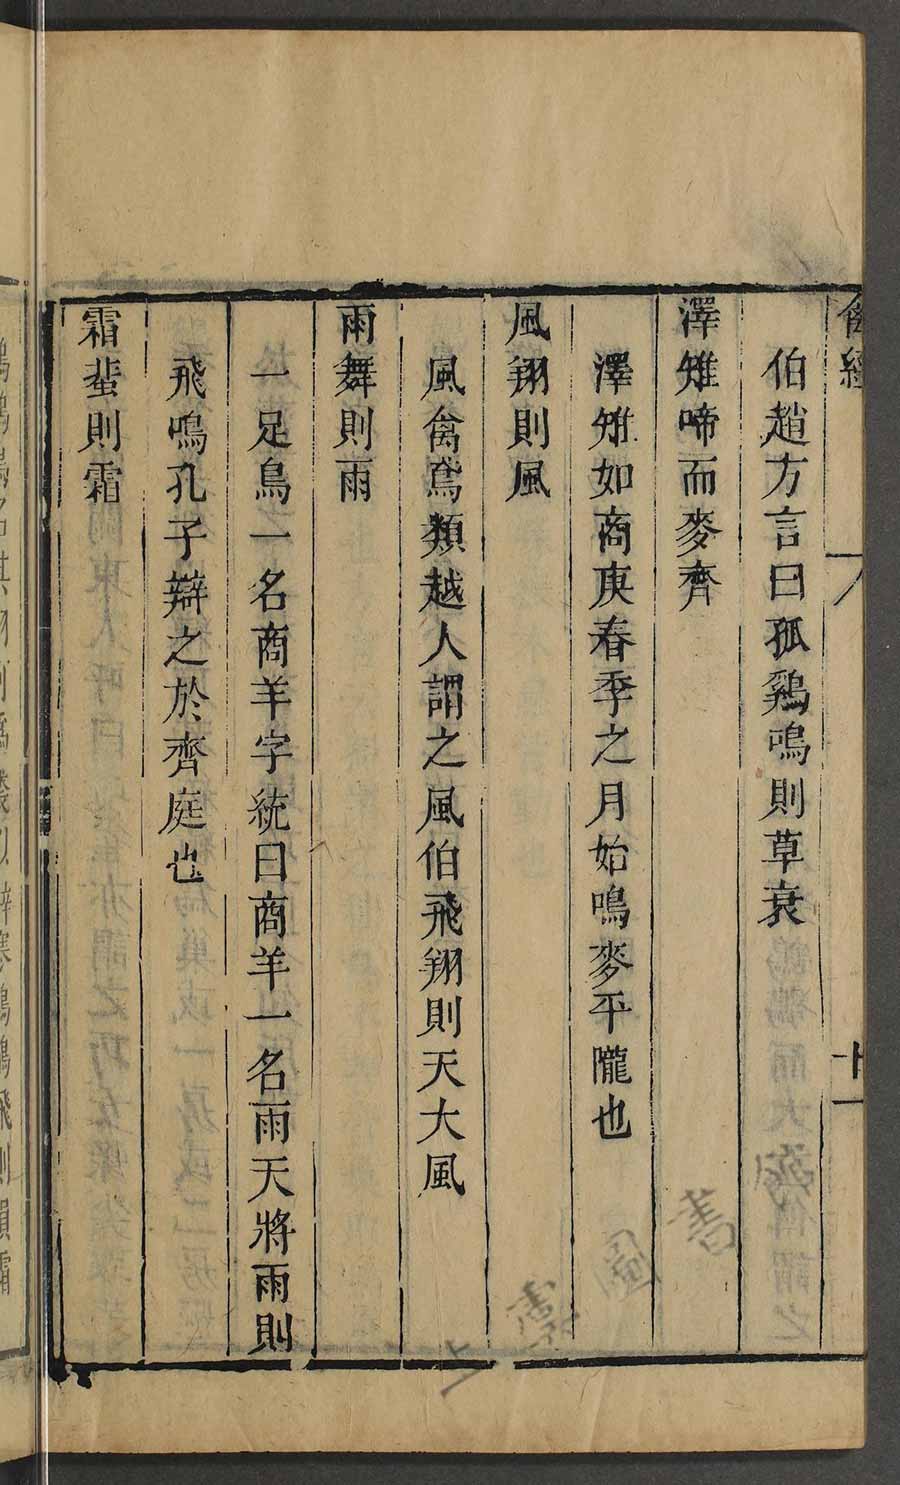 禽經
十一
伯趙方言曰孤鷄鳴則草衰
澤雉啼而麥齊
澤雉如商庚春季之月始鳴麥平隴也
風翔則風
風禽鳶類越人謂之風伯飛翔則天大風
雨舞則雨
一足鳥一名商羊字統曰商羊一名雨天將雨則
飛鳴孔子辯之於齊庭也
霜蜚則霜